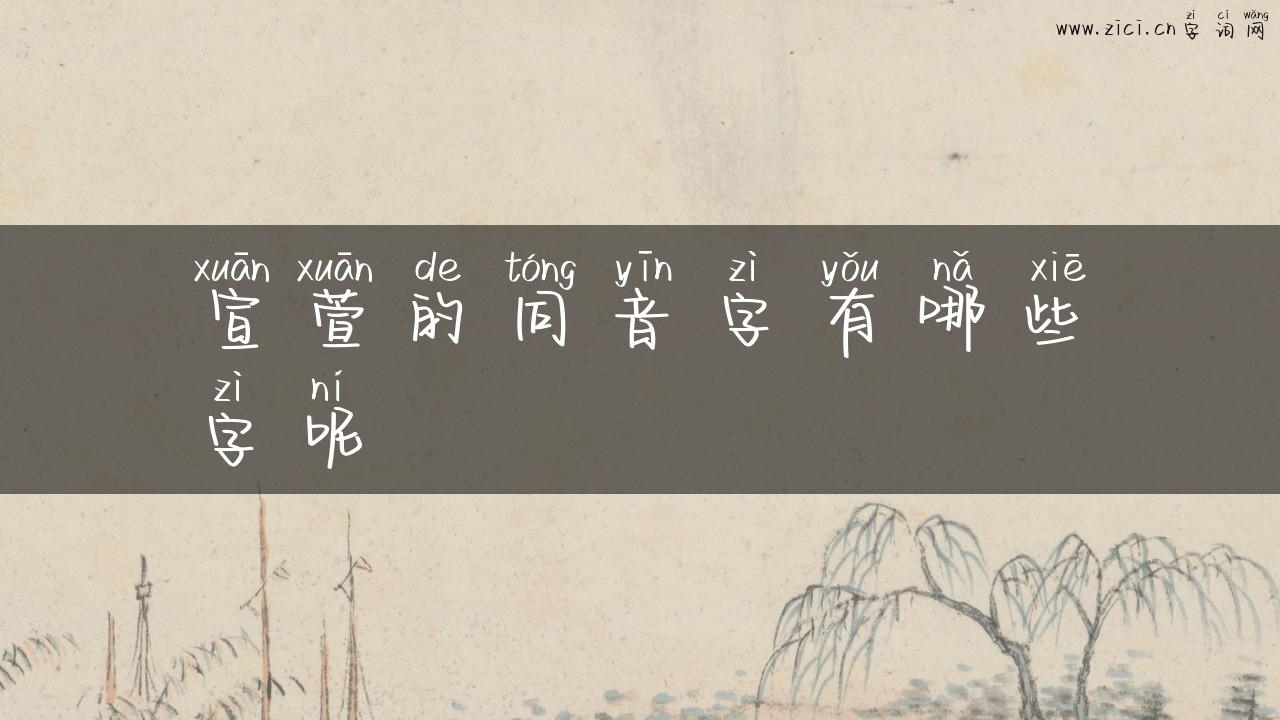 zì cí wǎng
www.zici.cn 字词网
xuān xuān de tóng yīn zì yǒu nǎ xiē
宣萱的同音字有哪些
zì ní
字呢